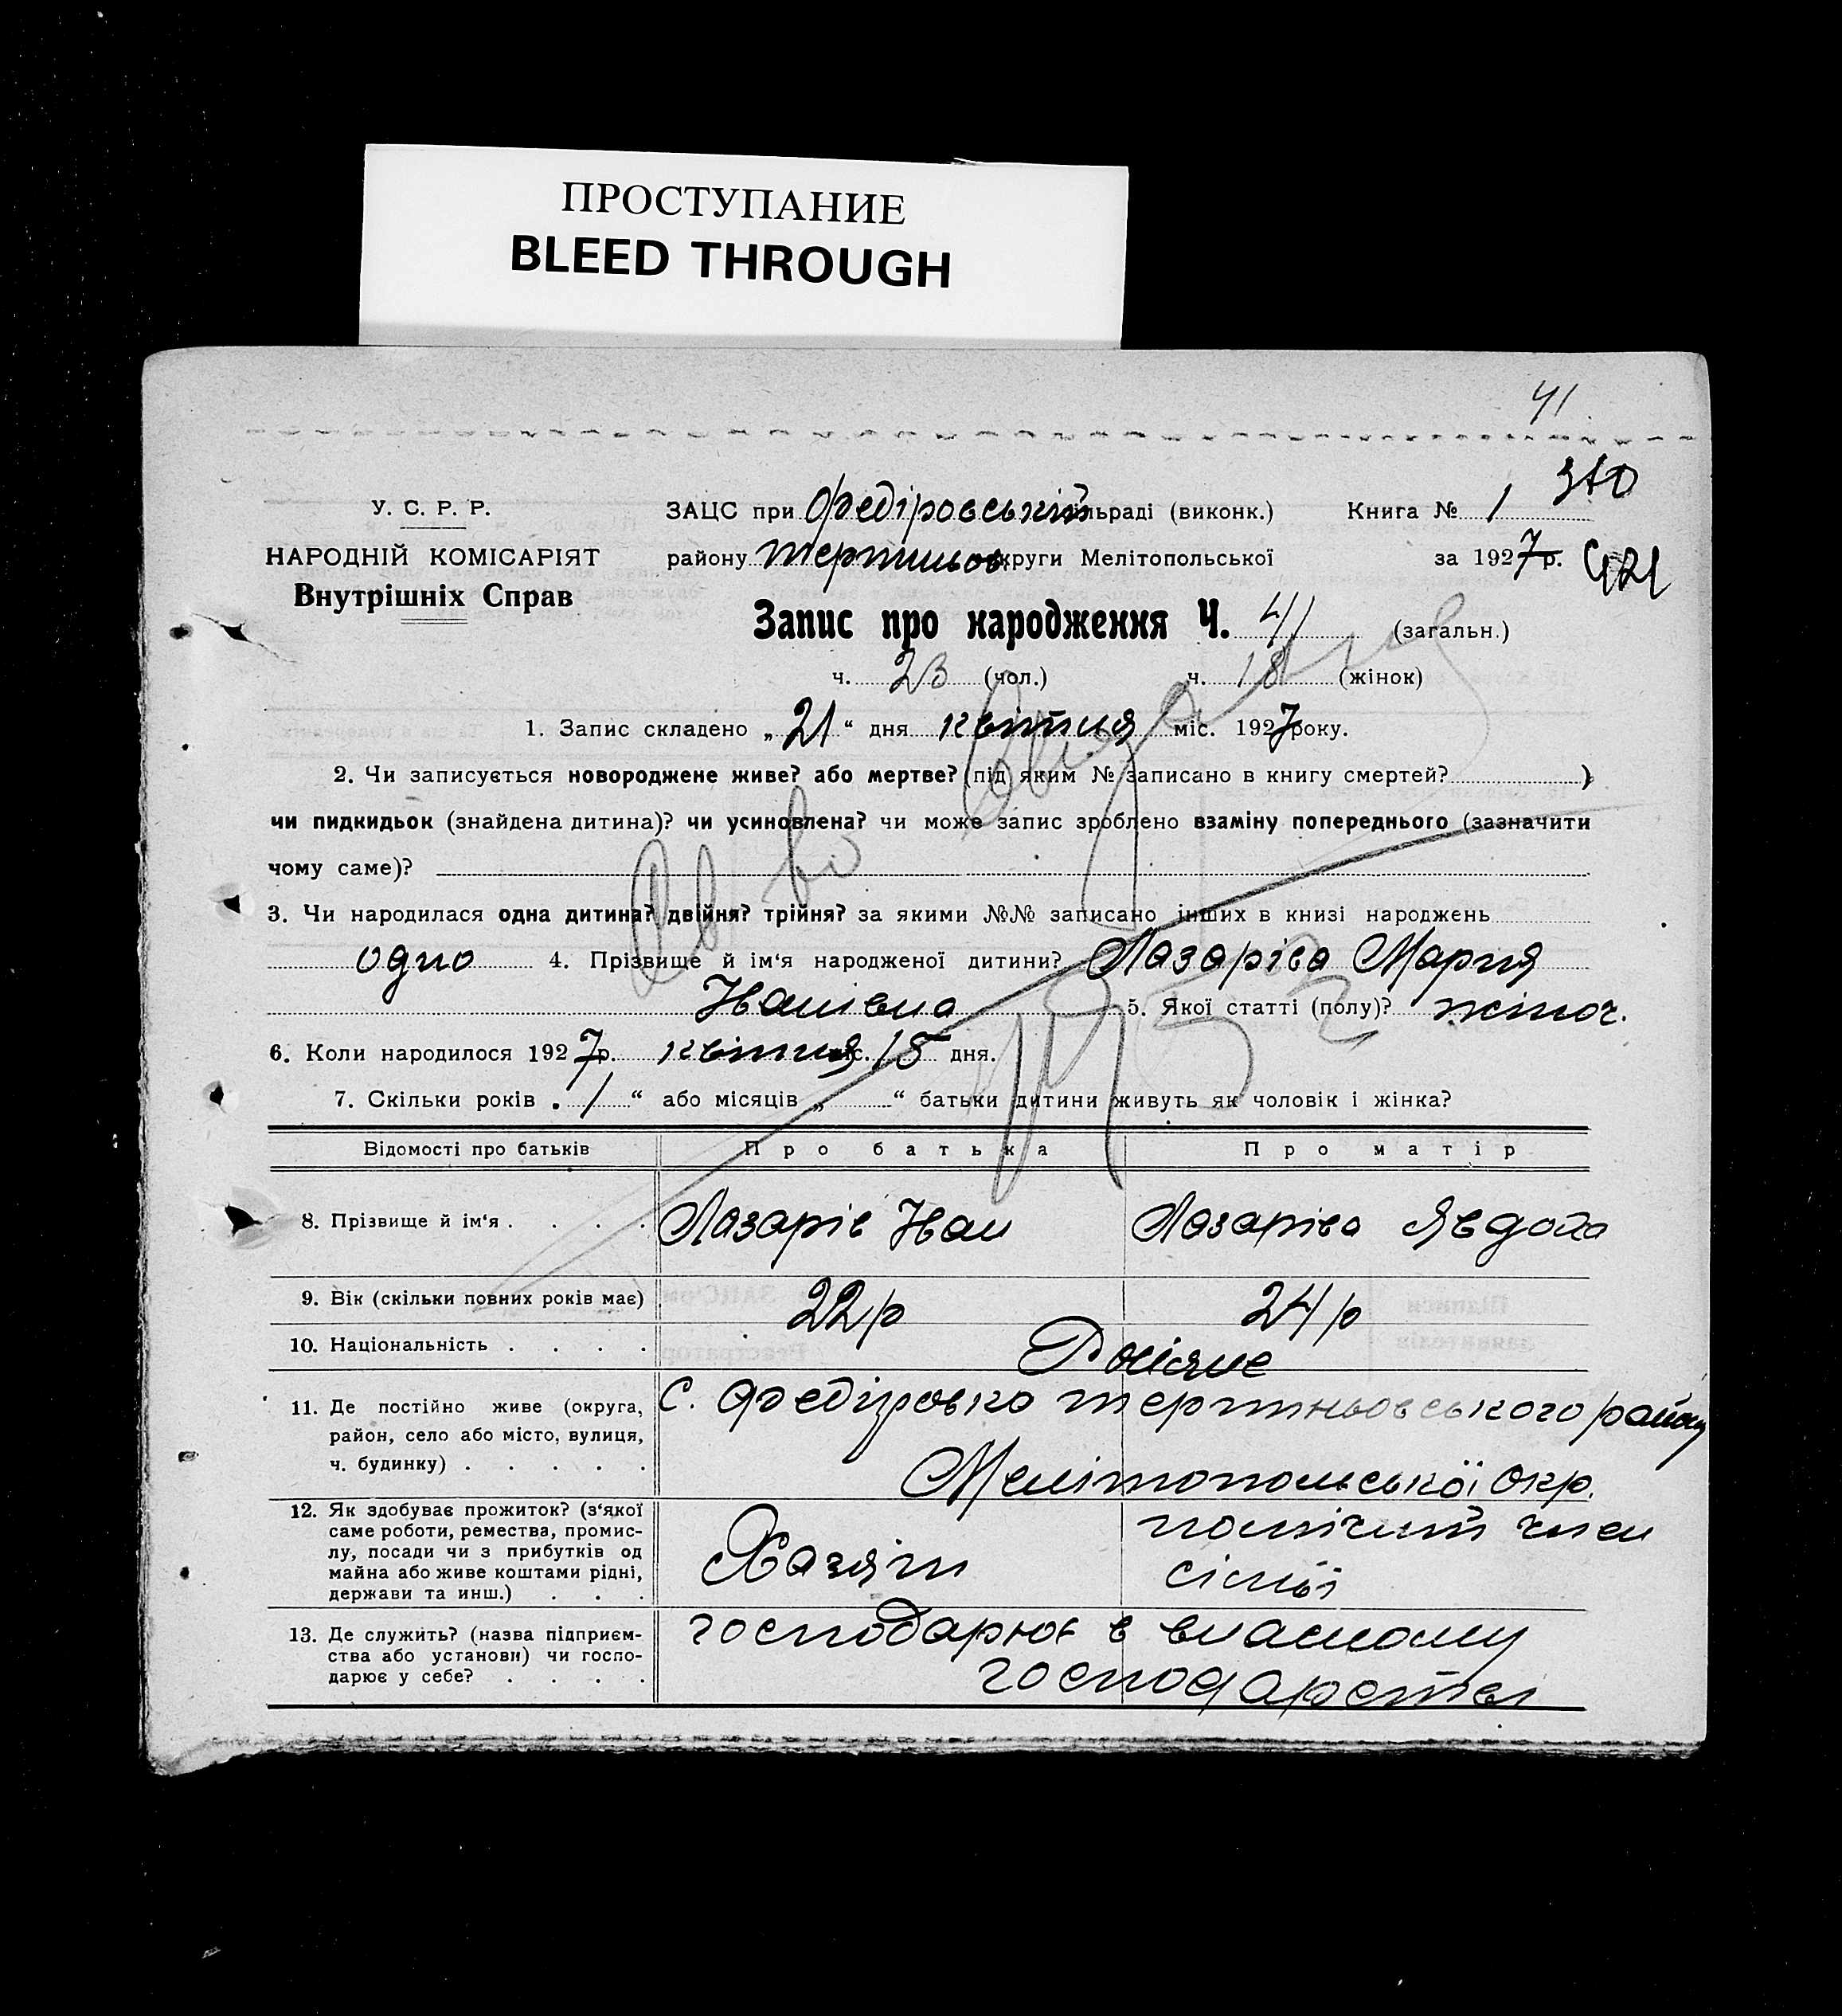 ПРОСТУПАНИЕ
BLEED THROUGH
41
У. С. Р. Р.
НАРОДНІЙ КОМІСАРІЯТ
Внутрішніх Справ
ЗАЦС при Федіровській сільраді (виконк.)
Книга № 1
району округи Мелітопольської
за 1927 р. 421
Запис про народження Ч. 41 (загальн.)
ч. 23 (чол.) ч. 18 (жінок)
1. Запис складено „ 21 “ дня квітня міс. 1927 року.
2. Чи записується новороджене живе? або мертве? (під яким № записано в книгу смертей? )
чи пидкидьок (знайдена дитина)? чи усиновлена? чи може запис зроблено взаміну попереднього (зазначити
чому саме)?
3. Чи народилася одна дитина? двійня? трійня? за якими №№ записано інших в книзі народжень
одно 4. Прізвище й ім‘я народженої дитини? Лазаріва Мария
Іванівна 5. Якої статті (полу)? жіноч.
6. Коли народилося 1927 р. квітня міс. 18 дня.
7. Скільки років „ 1 “ або місяців „ “ батьки дитини живуть як чоловік і жінка?
Св во выдано
1952
Відомості про батьків Про батька Про матір
8. Прізвище й ім‘я . . . . Лазарів Іван Лазаріва Явдоха
9. Вік (скільки повних років має) 22 р 24 р
10. Національність . . . . Росіяне
11. Де постійно живе (округа,
район, село або місто, вулиця,
ч. будинку) . . . . .
с. Федіровка району
Мелітопольської окр.
12. Як здобуває прожиток? (з‘якої
саме роботи, ремества, промис-
лу, посади чи з прибутків од
майна або живе коштами рідні,
держави та инш.) . . .
Хазяїн
член
сімьї
13. Де служить? (назва підприєм-
ства або установи) чи госпо-
дарює у себе? . . . .
господарює в власному
господарстві